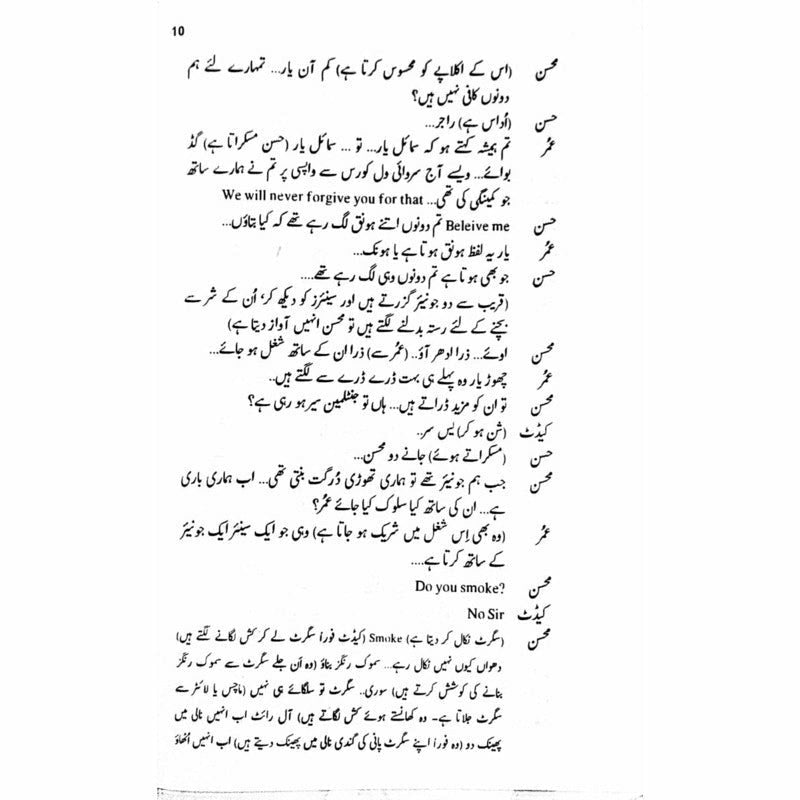 10
محسن (اس کے اکلاپے کو محسوس کرتا ہے) کم آن یار... تمہارے لئے ہم
دونوں کافی نہیں ہیں؟
حسن (اُداس ہے) راجر...
عمُر تم ہمیشہ کہتے ہو کہ سمائل یار... تو ... سمائل یار (حسن مسکراتا ہے) گڈ
بوائے... ویسے آج سروائی ول کورس سے واپسی پر تم نے ہمارے ساتھ
جو کمینگی کی تھی... We will never forgive you for that
حسن Beleive me تم دونوں اتنے ہونق لگ رہے تھے کہ کیا بتاؤں...
عمُر یار یہ لفظ ہونق ہوتا ہے یا ہونک...
حسن جو بھی ہوتا ہے تم دونوں وہی لگ رہے تھے....
(قریب سے دو جونیئر گزرتے ہیں اور سینئرز کو دیکھ کر، اُن کے شر سے
بچنے کے لئے رستہ بدلنے لگتے ہیں تو محسن انہیں آواز دیتا ہے)
محسن اوئے... ذرا ادھر آؤ.. (عمُر سے) ذرا ان کے ساتھ شغل ہو جائے...
عمُر چھوڑ یار وہ پہلے ہی بہت ڈرے ڈرے سے لگتے ہیں..
محسن تو ان کو مزید ڈراتے ہیں... ہاں تو جنٹلمین سیر ہو رہی ہے؟
کیڈٹ (شن ہو کر) یس سر..
حسن (مسکراتے ہوئے) جانے دو محسن...
محسن جب ہم جونیئر تھے تو ہماری تھوڑی دُرگت بنتی تھی... اب ہماری باری
ہے... ان کی ساتھ کیا سلوک کیا جائے عمُر؟
عمُر (وہ بھی اِس شغل میں شریک ہو جاتا ہے) وہی جو ایک سینئر ایک جونیئر
کے ساتھ کرتا ہے....
محسن Do you smoke?
کیڈٹ No Sir
محسن (سگرٹ نکال کر دیتا ہے) Smoke (کیڈٹ فوراً سگرٹ لے کر کش لگانے لگتے ہیں)
دھواں کیوں نہیں نکال رہے... سموک رنگز بناؤ (وہ اَن جلے سگرٹ سے سموک رنگز
بنانے کی کوشش کرتے ہیں) سوری.. سگرٹ تو سلگائے ہی نہیں (ماچس یا لائٹر سے
سگرٹ جلاتا ہے۔ وہ کھانستے ہوئے کش لگاتے ہیں) آل رائٹ اب انہیں نالی میں
پھینک دو (وہ فوراً اپنے سگرٹ پانی کی گندی نالی میں پھینک دیتے ہیں) اب انہیں اُٹھاؤ